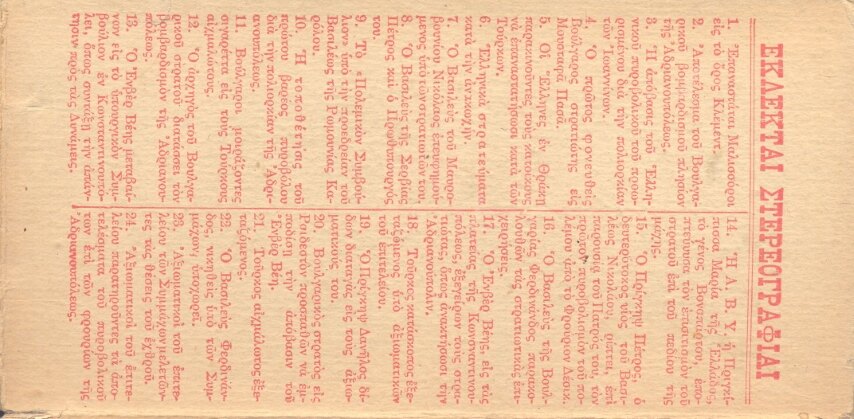 ΕΚΛΕΚΤΑΙ ΣΤΕΡΕΟΓΡΑΦΙΑΙ
1. Ἐπαναστάται Μαλισσόροι
εἰς τὸ ὄρος Κλεμέντ.
2. Ἀποτέλεσμα τοῦ Βουλγα-
ρικοῦ βομβαρδισμοῦ πλησίον
τῆς Ἀδριανουπόλεως.
3. Ἡ ἀπόβασις τοῦ Ἑλλη-
νικοῦ πυροβολικοῦ τοῦ προω-
ρισμένου διὰ τὴν πολιορκίαν
τῶν Ἰωαννίνων.
4. Ὁ πρῶτος φονευθεὶς
Βούλγαρος στρατιώτης εἰς
Μουσταφᾶ Πασᾶ.
5. Οἱ Ἕλληνες ἐν Θράκῃ
παροτρύνοντες τοὺς κατοίκους
νὰ ἐπαναστατήσουν κατὰ τῶν
Τούρκων.
6. Ἑλληνικὰ στρατεύματα
κατὰ τὴν ἀνακωχήν.
7. Ὁ Βασιλεὺς τοῦ Μαυρο-
βουνίου Νικόλαος ἐπευφημού-
μενος ὑπὸ τῶν στρατιωτῶν του.
8. Ὁ Βασιλεὺς τῆς Σερβίας
Πέτρος καὶ ὁ Πρωθυπουργός
του.
9. Τὸ «Πολεμικὸν Συμβού-
λιον» ὑπὸ τὴν προεδρείαν τοῦ
Βασιλέως τῆς Ρωμουνίας Κα-
ρόλου.
10. Ἡ τοποθέτησις τοῦ
πρώτου βαρέος πυροβόλου
διὰ τὴν πολιορκίαν τῆς Ἀδρι-
ανουπόλεως.
11. Βούλγαροι μοιράζοντες
σιγαρέττα εἰς τοὺς Τούρκους
αἰχμαλώτους.
12. Ὁ ἀρχηγὸς τοῦ Βουλγα-
ρικοῦ στρατοῦ διατάσσει τὸν
βομβαρδισμὸν τῆς Ἀδριανου-
πόλεως.
13. Ὁ Ἐνβὲρ Βέης μεταβαί-
νων εἰς τὸ ὑπουργικὸν Συμ-
βούλιον ἐν Κωνσταντινουπό-
λει, ὅπως συντάξῃ τὴν ἀπάν-
τησιν πρὸς τὰς Δυνάμεις.
14. Ἡ Α. Β. Υ. ἡ Πριγκί-
πισσα Μαρία τῆς Ἑλλάδος,
τὸ γένος Βοναπάρτου, ἐπο-
πτεύουσα τὸν ἐπισιτισμὸν τοῦ
στρατοῦ ἐπὶ τοῦ πεδίου τῆς
μάχης.
15. Ὁ Πρίγκηψ Πέτρος, ὁ
δευτερότοκος υἱὸς τοῦ Βασι-
λέως Νικολάου, ρίπτει, ἐπὶ
παρουσίᾳ τοῦ Πατρός του, τὸν
πρῶτον πυροβολισμὸν τοῦ πο-
λέμου ἀπὸ τὸ Φρούριον
16. Ὁ Βασιλεὺς τῆς Βουλ-
γαρίας Φερδινάνδος παρακο-
λουθῶν τὰς στρατιωτικὰς ἐπι-
χειρήσεις.
17. Ὁ Ἐνβὲρ Βέης, εἰς τὰς
πλατείας τῆς Κωνσταντινου-
πόλεως, ἐξεγείρων τοὺς στρα-
τιώτας, ὅπως ἀνακτήσουν τὴν
Ἀδριανούπολιν.
18. Τοῦρκος κατάσκοπος ἐξε-
ταζόμενος ὑπὸ ἀξιωματικῶν
τοῦ ἐπιτελείου.
19. Ὁ Πρίγκηψ Δανιῆλος δί-
δων διαταγὰς εἰς τοὺς ἀξιω-
ματικούς του.
20. Βουλγαρικὸς στρατὸς εἰς
Ραιδεστὸν προσπαθῶν νὰ ἐμ-
ποδίσῃ τὴν ἀπόβασιν τοῦ
Ἐνβὲρ Βέη.
21. Τοῦρκος αἰχμάλωτος ἐξε-
ταζόμενος.
22. Ὁ Βασιλεὺς Φερδινάν-
δος νικηθεὶς ὑπὸ τῶν Συμ-
μάχων ὑποχωρεῖ.
23. Ἀξιωματικοὶ τοῦ ἐπιτε-
λείου τῶν Συμμάχων μελετῶν-
τες τὰς θέσεις τοῦ ἐχθροῦ.
24. Ἀξιωματικοὶ τοῦ ἐπιτε-
λείου παρατηροῦντες τὰ ἀπο-
τελέσματα τοῦ πυροβολικοῦ
των ἐπὶ τῶν φρουρίων τῆς
Ἀδριανουπόλεως.